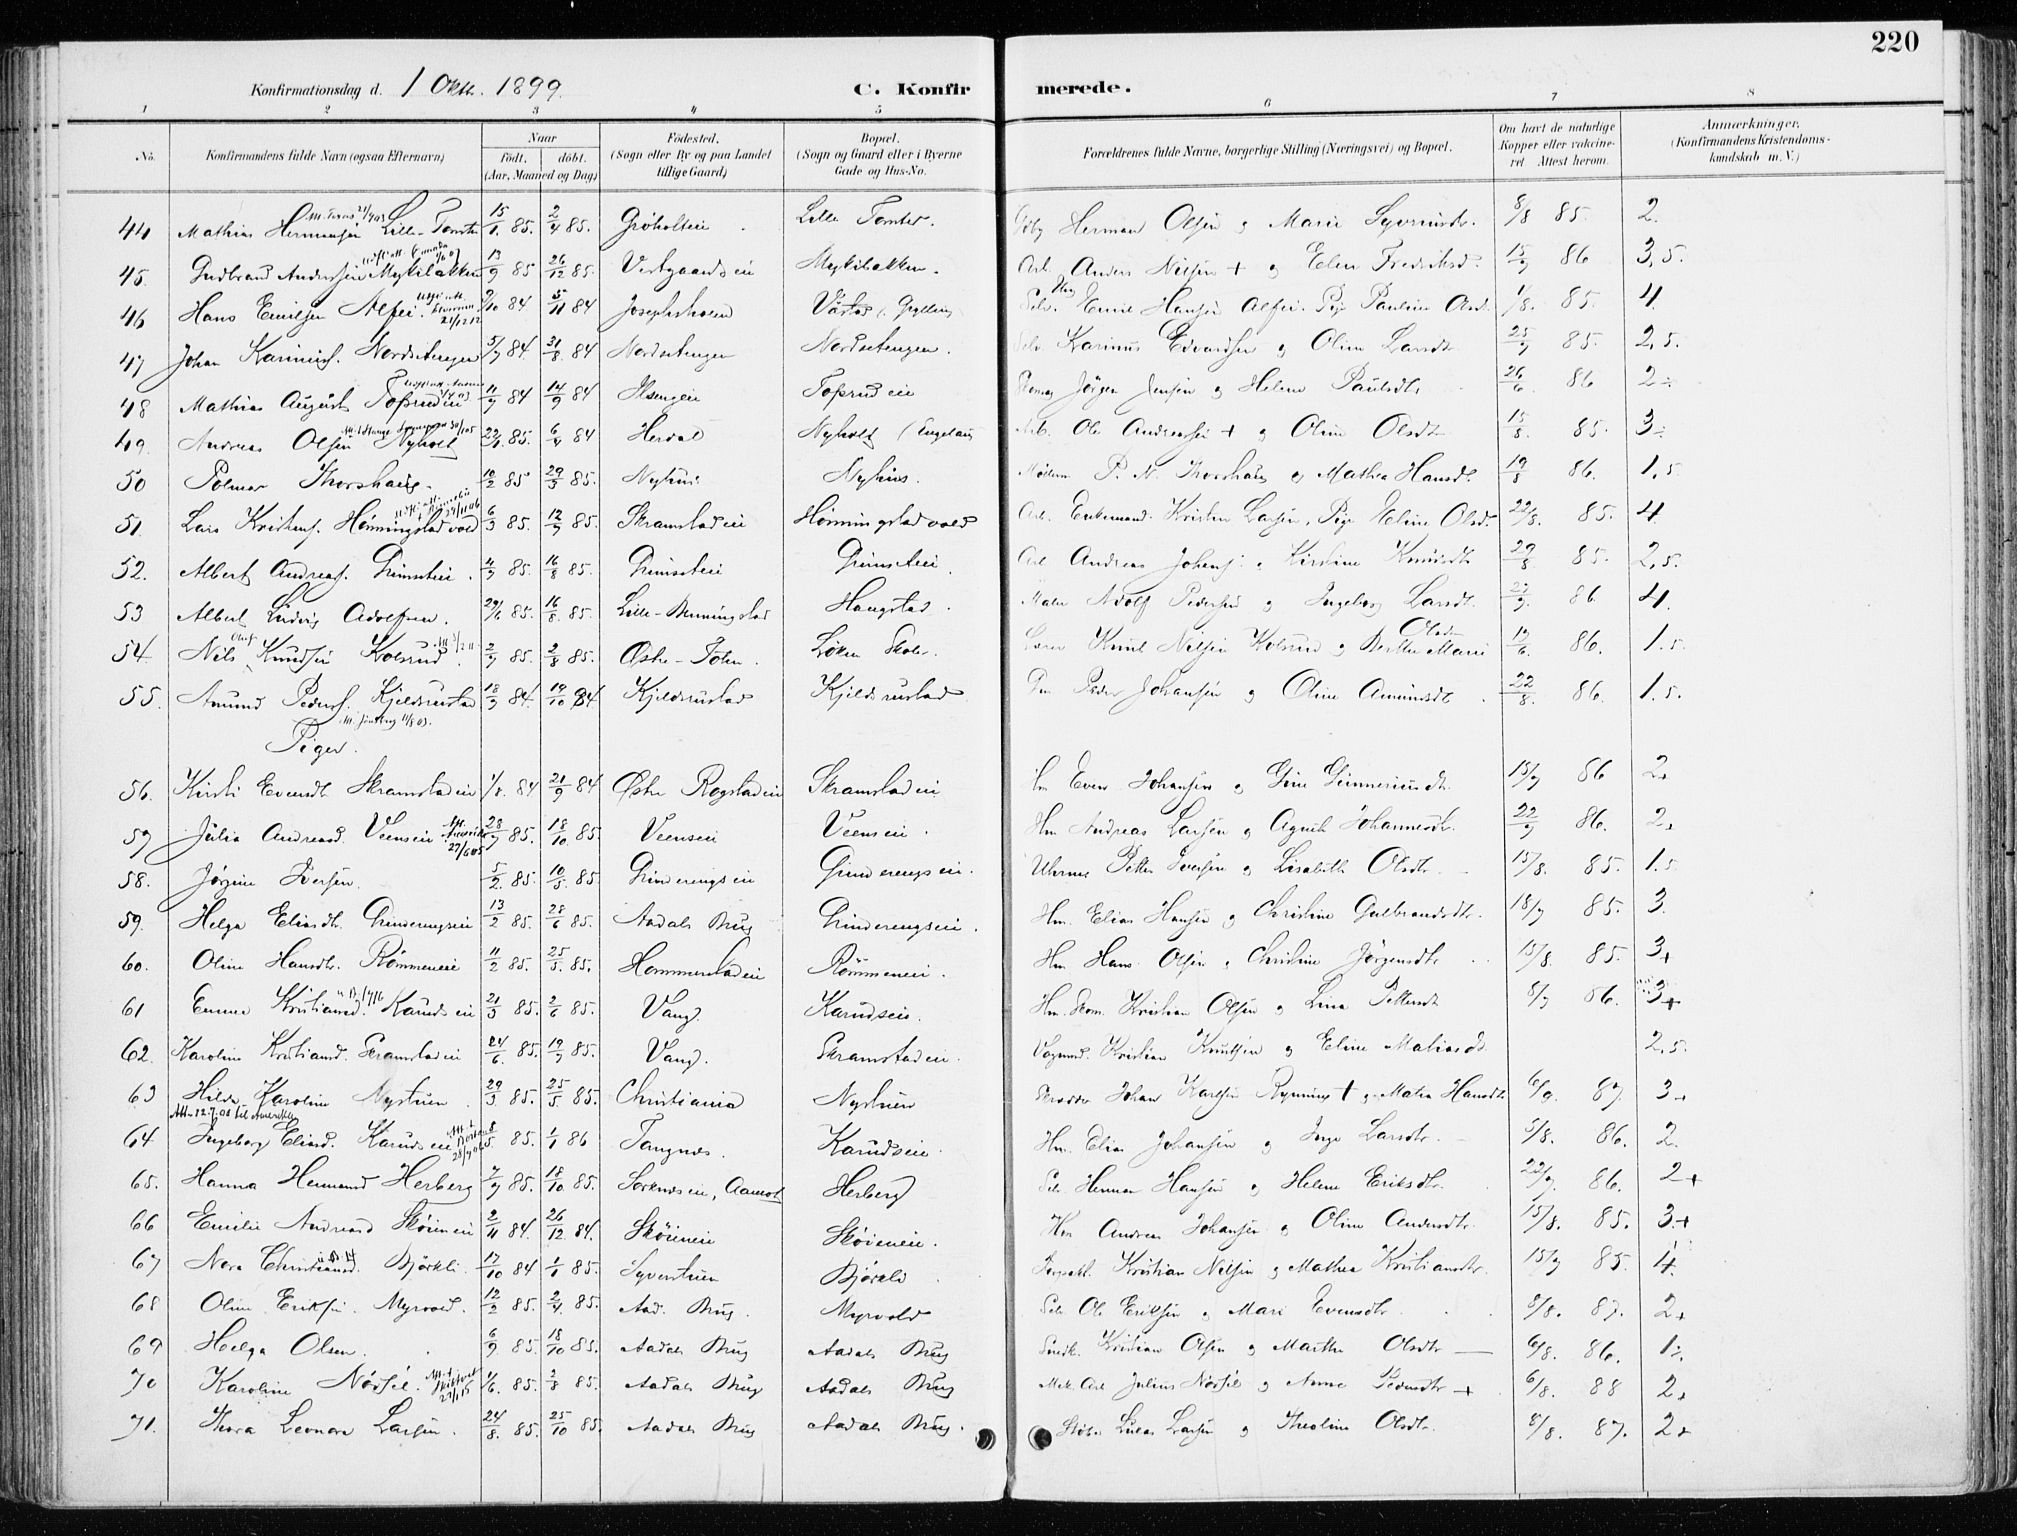 220
Konfirmationsdag d. 1 Oktr. 1899. C. Konfirmerede.
1 2 3 4 5 6 7 8
No. Konfirmandens fulde Navn (ogsaa Efternavn) Naar født. døbt. (Aar, Maaned og Dag) Fødested. (Sogn eller By og paa Landet tillige Gaard) Bopæl. (Sogn og Gaard eller i Byerne Gade og Hus-No. Forældrenes fulde Navne, borgerlige Stilling (Næringsvei) og Bopæl. Om havt de naturlige Kopper eller vakcineret Attest herom. Anmærkninger, (Konfirmandens Kristendomskundskab m. V.)
44 Mathias Hermansen Lille-Tomter 15/1 85. 2/4 85. Grøholteie Lille Tomter. Herman Olsen og Marie Syversdtr. 8/8 85. 2.
45. Gudbrand Andersen Myhibakken 13/9 85 26/12 85. Vestgaardseie Myhibakken. Arb. Anders Nilsen + og Eline Fredriksd. 15/9 86 3,5.
46 Hans Emilsen Alfei. 9/10 84 5/11 84 Josephsholm Emil Hansen Alfei. Pige Pauline And. 1/8. 85. 4.
47 Johan Karinius. Nordsetengen 5/7 84. 31/8. 84 Nordsetengen Nordsetengen. Karinus Edvardsen og Oline Larsdtr 25/9 85. 2,5.
48 Mathias August Tofsrudeie 11/7 84 14/9 84 Ilsengeie Tofsrudeie Jørgen Jensen og Helene Paulsdtr 26/6 86 2÷
49. Andreas Olsen Nyholt 85. 84 Herdal Nyholt Arb. Ole Andreasen + og Oline Olsdtr 15/8. 85. 3÷
50 Polmar Thorshaug. 10/2 85 29/3 85. Nyhus. Nyhus. P. N. Thorshaug og Mathea Hansdt. 19/8 86. 1,5.
51. Lars Kristens. Hønningstadvold 6/3 85. 12/7 85. Skramstadeie Hønningstadvold Arb. Enkemand. Kristen Larsen, Pige Eline Olsd. 22/8. 85. 4
52. Albert Andreas. Grimsteie. 4/7 85. 16/8 85. Grimsteie Grimsteie. Arb Andreas Johans. Kirstine Knudsdtr 29/8 85. 2,5.
53 Albert Ludvig Adolfsen. 29/6 85. 16/8. 85. Lille-Benningstad Haugstad. Maler Adolf Pedersen og Ingeborg Larsdt. 86. 4.
54 Nils Olaf Knudsen Kolsrud 2/7 85. 2/8 85. Østre-Toten. Løken Skole. Knut Nilsen Kolsrud og Berthe Marie Olsdr 19/6. 86. 1.5
55. Amund Peders. Kjeldsrustad 18/9 84. 19/10 84 Kjeldsrustad Kjeldsrustad Peder Johansen og Oline Amundsdt. 22/8. 86. 1.5.
Piger.
56. Kirsti Evensdt Skramstadeie 1/8. 84 21/9 84 Østre Rogstadeie Skramstadeie Hm Even Johansen og Gine Gunneriusdtr. 15/9 86 2+
57 Julia Andreasd. Veenseie 28/7 85. 18/10. 85. Veenseie Veenseie. Hm. Andreas Larsen og Agnete Johannesdtr. 22/9 86. 2+
58. Jørgine Iversen. 5/2. 85. 10/5. 85 Grinderengseie Grinderengseie. Uhrm. Petter Iversen og Lisabeth Olsdtr. 15/8. 85. 1.5
59. Helga Eliasdtr. Grinderengseie 13/2 85. 28/6 85. Aadals Brug Grinderengseie. Hm. Elias Hansen og Christine Gulbrandsdtr. 18/9 85. 3.
60. Oline Hansdtr. Rømmeneie 11/2 85. 25/5. 85. Hommerstadeie Rømmeneie. Hm Hans Olsen og Christine Jørgensdtr 15/8. 85. 3+
61 Emma Kristiansd. Karudseie 21/3 85. 2/6 85. Vang. Karudseie. Hm. Skom. Kristian Olsen og Lina Pettersdt 8/9 86. 3+
62. Karoline Kristiansd. Skramstadeie 24/6. 85. 19/7 85. Vang. Skramstadeie. Kristian Knutsen og Eline Matiasdt. 2,5.
63 Hilda Karoline Nystuen 29/3 85. 25/5 85. Christiania Nystuen Skrædder Johan Karlsen Rynning + og Matea Hansdtr 6/9. 87. 3+
Att. 12.7.08 til Amerika
64 Ingeborg Eliasd. Karudseie 8/5 85. 1/1 86 Tangnæs. Karudseie. Hm. Elias Johansen og Inge Larsdtr. 5/8. 86. 2.
65. Hanna Hermansd Herberg 7/9 85. 18/10 85. Sorknæseie, Aamot Herberg Selv. Herman Hansen og Helene Eriksdtr. 22/9. 86. 2+
66 Emilie Andreasd Skøieneie 2/11 84. 26/12 84. Skøieneie Skøieneie. Hm Andreas Johansen og Oline Andersdtr. 15/8. 85. 3+
67 Nora Christiansd. Bjørkli. 17/10 84 1/1 85. Syverstuen Bjørkli Kristian Nilsen og Mathea Kristiansdtr. 15/9 85. 4.
68 Oline Eriksen Myrvold. 12/2 85. 2/4 85. Aad. Brug. Myrvold Selv. Ole Eriksen og Mari Evensdtr. 8/8. 87. 2+
69 Helga Olsen. 6/9 85. 18/10 85. Aadals Brug Aadals Brug Snedk. Kristian Olsen og Marthe Olsdtr — 6/8. 86. 1÷
70 Karoline Nørfel. 1/6. 85. 2/8 85. Aadals Brug Aadals Brug Mek. Arb. Julius Nørfel og Anne Pedersdtr + 6/8. 88 2+
71. Thora Leonora Larsen. 24/8. 85. 25/10 85. Aadals Brug Aadals Brug. Støber Lucas Larsen og Theoline Olsdtr. 8/8. 87. 2+